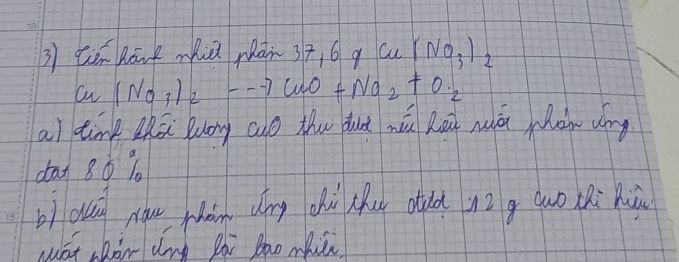 3) Tiến hành nhiệt phân 37,6 g Cu(NO3)2
Cu(NO3)2 ---> CuO + NO2 + O2
a) tính khối lượng CuO thu được nếu hiệu suất phản ứng
đạt 80%
b) Nếu sau phản ứng chỉ thu được 12 g CuO thì hiệu
suất phản ứng là bao nhiêu.